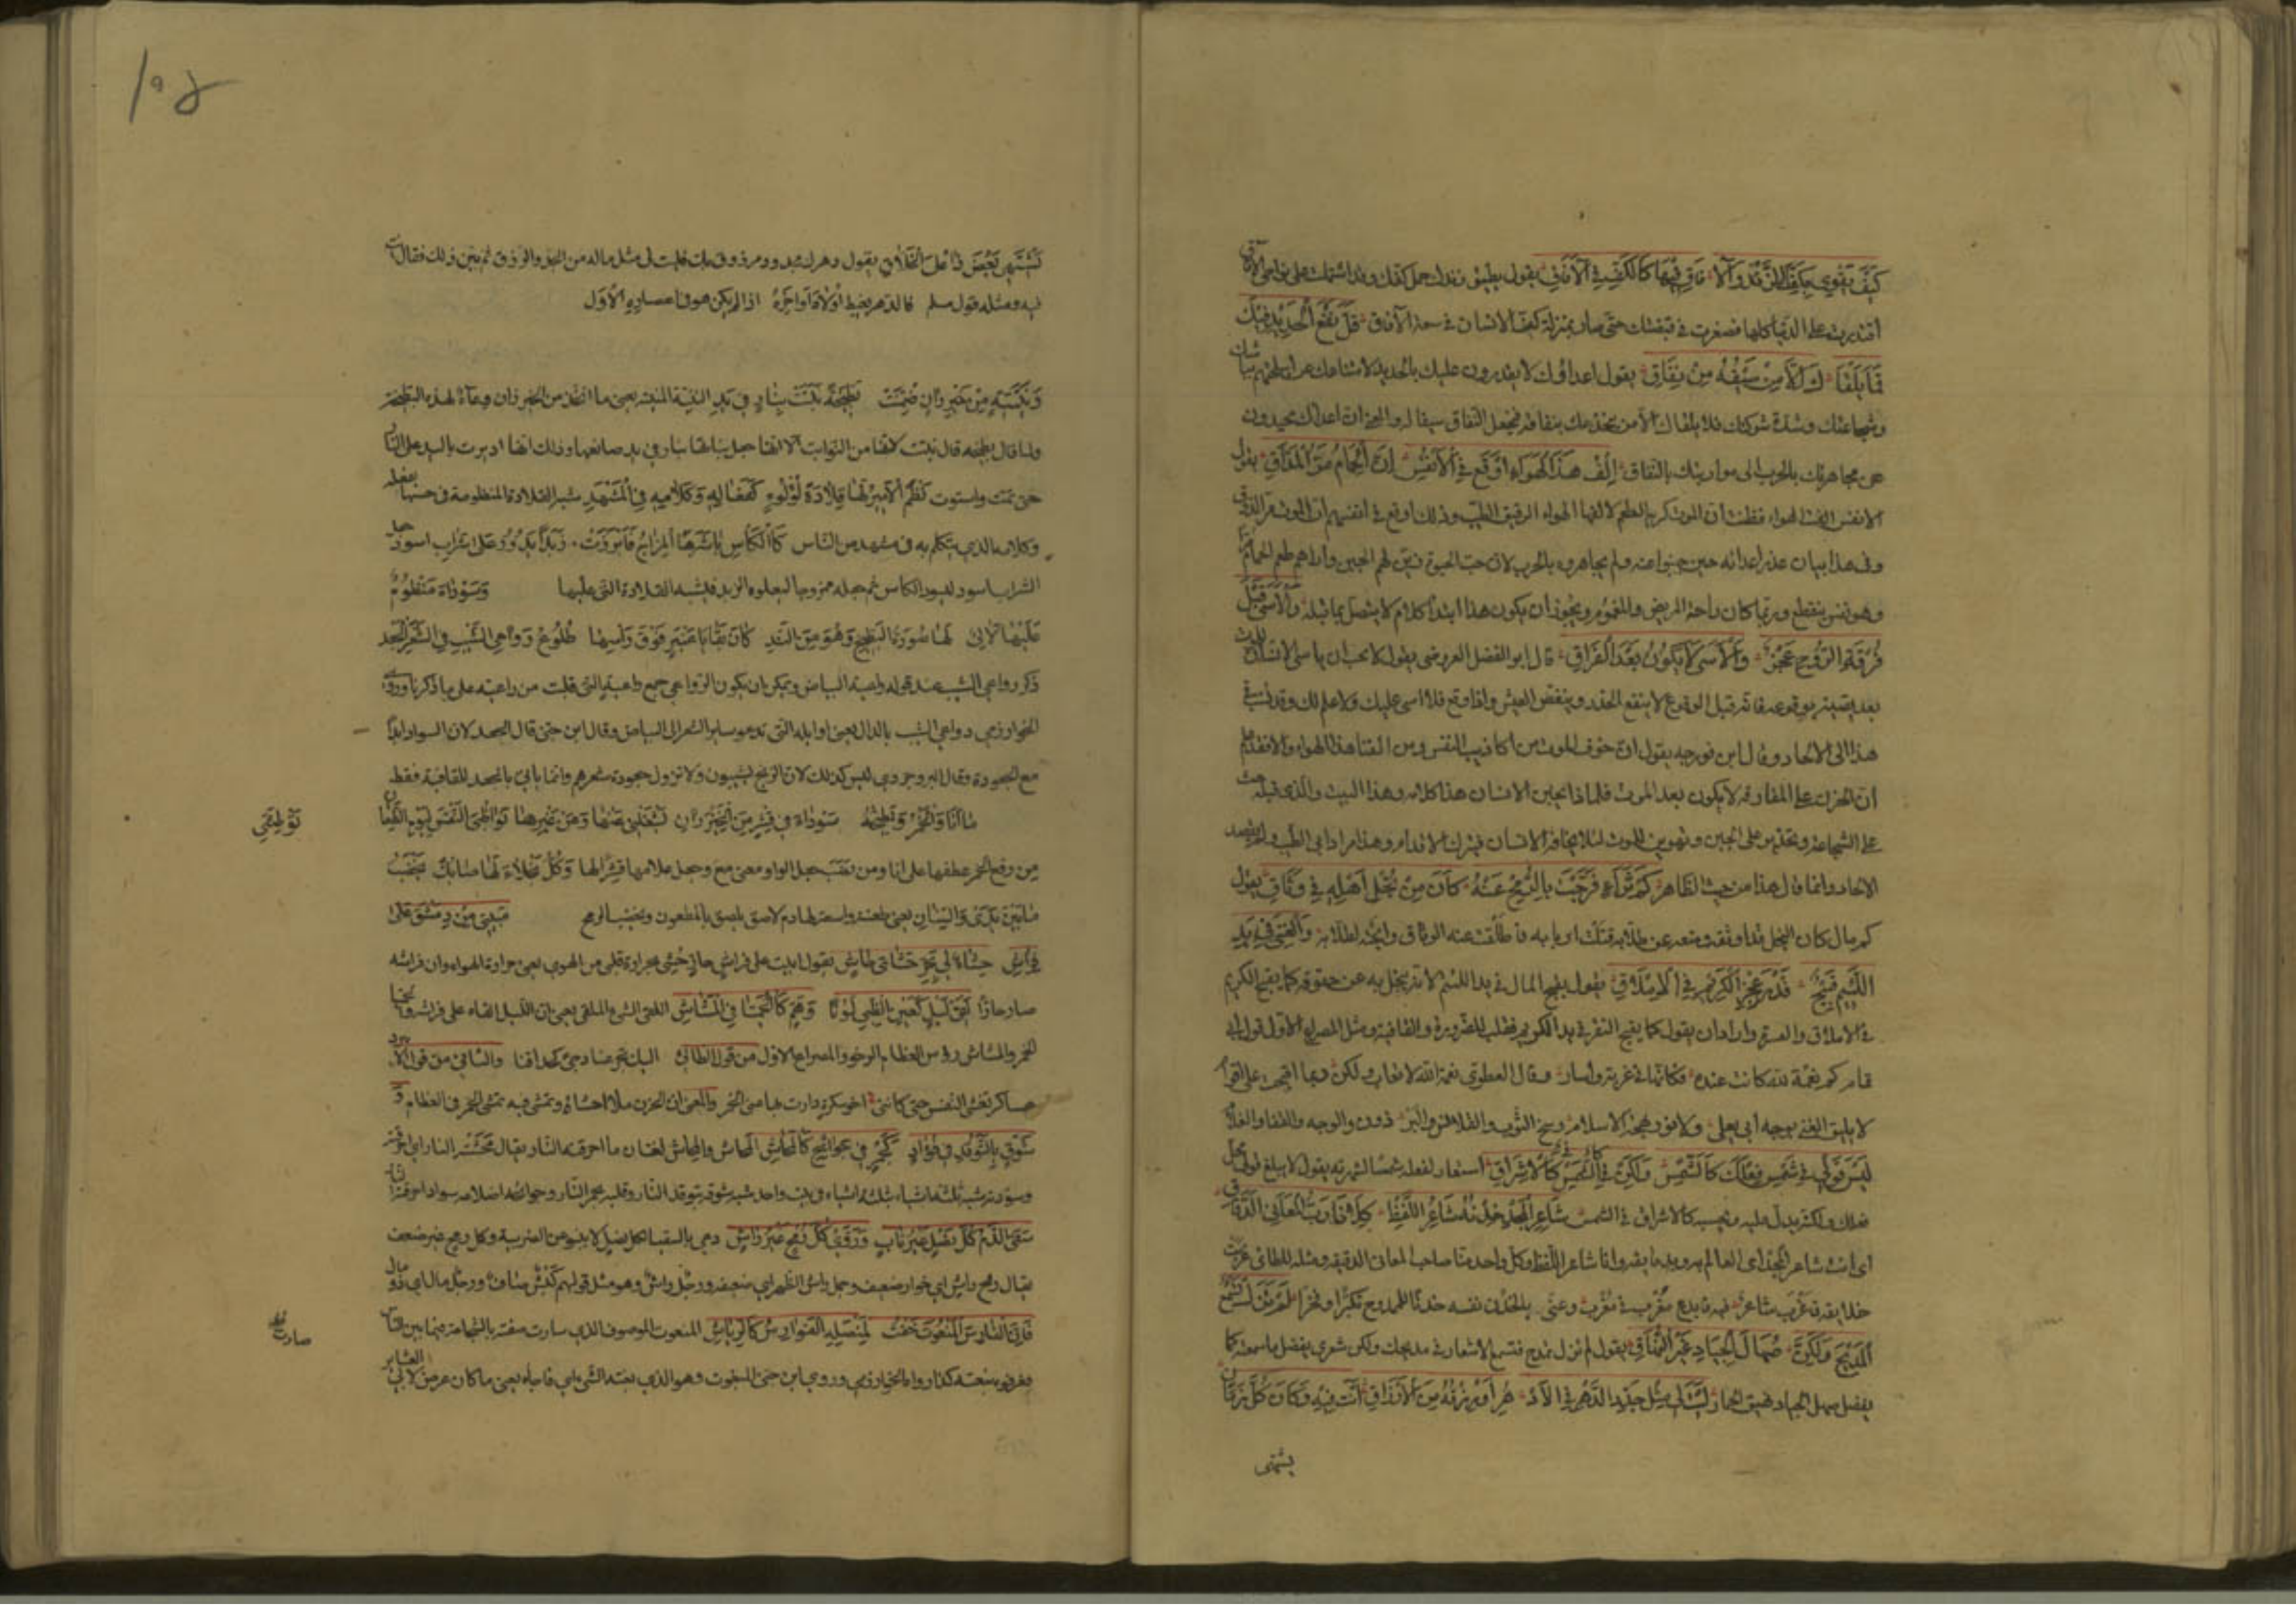 كَيفَ يَقْوى بِكَفِّكَ الزَّنْدُ وَالآ فَاقُ فِيهَا كَالكَفِّ فِي الآفَاقِ يقول كيف يطيق زندك حمل كفك وقد اشتملت على نواحي الآفاق
اقتدرت على الدنيا كلها فصغرت في قبضتك حتى صار بمنزلة كف الانسان في سعة الآفاق قَلَّ نَفْعُ الْحَدِيدِ فِيكَ
فَمَا يَلْقَاكَ إِلَّا مَنْ سَيْفُهُ مِنْ نِفَاقِ يقول اعداؤك لا يقدرون عليك بالحديد
وشجاعتك وشدة شوكتك فلا يلقاك الا من يخدعك بنفاقه فيجعل النفاق سيفا له والمعنى ان اعداءك يحيدون
عن مجاهرتك بالحرب الى مواربتك بالنفاق إِلْفُ هَذَا الهَوَاءِ أَوْقَعَ فِي الأَنْفُسِ أَنَّ الحِمَامَ مُرُّ المَذَاقِ يقول
الانفس الفت الهواء فظنت ان الموت كريه الطعم لالفها الهواء الرقيق الطيب وذلك اوقع في انفسهم ان الموت مر المذاق
وفي هذا بيان عذر اعدائه حين جبنوا عنه ولم يجاهروه بالحرب لان حب الحيوة زين لهم الجبن واراهم طعم الحمام مرا
وهو نفس ينقطع وربما كان راحة المريض والمغموم ويجوز ان يكون هذا ابتداء كلام لا يتصل بما قبله وَالأَسَى قَبْلَ
فُرْقَةِ الرُّوحِ عَجْزٌ وَالأَسَى لَا يَكُونُ بَعْدَ الفِرَاقِ قال ابو الفضل العروضي يقول لا يجب ان يأسى الانسان للموت
بعد يقينه بوقوعه فانه قبل الوقوع لا ينفع الحذر وينغص العيش واذا وقع فلا اسى عليك ولا علم لك وقد نسب في
هذا الى الالحاد وقال ابن فورجه يقول ان خوف الموت من اكاذيب النفس ومن الفتنا هذا الهواء والا فقد علم
ان الحزن على المفارقة لا يكون بعد الموت فلماذا يجبن الانسان هذا كلامه وهذا البيت والذي قبله حث
على الشجاعة وتحذير على الجبن وتهوين للموت لئلا يخافه الانسان فيترك الاقدام وهذا مراد ابي الطيب ولم يقصد
الالحاد وانما قال هذا من حيث الظاهر كَمْ ثَرَاءٍ فَرَّجْتَ بِالرُّمْحِ عَنْهُ كَانَ مِنْ بُخْلِ أَهْلِهِ فِي وَثَاقِ يقول
كم مال كان البخل قد اوثقه ومنعه عن طلابه قتلت اربابه فاطلقت عنه الوثاق وابحته لطلابه وَالغِنَى فِي يَدِ
اللَّئِيمِ قَبِيحٌ قَدْرَ قُبْحِ الكَرِيمِ فِي الإِمْلَاقِ يقول يقبح المال في يد اللئيم لانه يبخل به عن حقوقه كما يقبح الكريم
في الاملاق والعسرة واراد ان يقول كما يقبح الفقر في يد الكريم فقلب للضرورة والقافية ومثل المصراع الاول قول ابي
تمام كم نعمة لله كانت عنده فكأنها في غربة واسار وقال العطوي نعمة الله لا تعاب ولكن ربما اقبحت على اقوام
لا يليق الغنى بوجه ابي يعلى ولا نور بهجة الاسلام وسخ الثوب والقلانس والبرذون والوجه والقفا والغلام
لَيْسَ قَوْلِي فِي شَمْسِ فِعْلِكَ كَالشَّمْسِ وَلَكِنْ فِي الشَّمْسِ كَالإِشْرَاقِ استعار لفعله شمسا لشهرته يقول لا يبلغ قولي محل
فعلك ولكنه يدل عليه ويحسنه كالاشراق في الشمس شَاعِرُ المَجْدِ خِدْنُهُ شَاعِرُ اللَّفْظِ كِلَانَا رَبُّ المَعَانِي الدِّقَاقِ
اي انت شاعر المجد اي العالم به وانا شاعر اللفظ وكل واحد منا صاحب المعاني الدقيقة ومثله للطائي غربت
خلائقه فاغرب شاعر فيه فابدع مغرب في مغرب وعنى بالخدن نفسه
المَدِيحَ وَلَكِنَّ صَهَالَ الجِيَادِ غَيْرُ النُّهَاقِ يقول لم تزل تمدح فتسمع الاشعار في مديحك ولكن شعري يفضل ما سمعته كما
يفضل صهيل الجياد نهيق الحمار لَيْتَ لِي مِثْلَ جَدِّ ذَا الدَّهْرِ فِي الأَدْهُرِ أَوْ رِزْقِهِ مِنَ الأَرْزَاقِ أَنْتَ فِيهِ وَكَانَ كُلُّ زَمَانٍ
يشتهى
١٩٥
يَشْتَهِي بَعْضَ ذَا عَلَى الخَلَّاقِ يقول دهرك مجدود ومرزوق بك فليت لي مثل ماله من الجد والرزق ثم بين ذلك فقال انت
فيه ومثله قول مسلم فالدهر يغبط اولاه اواخره اذ لم يكن هو في اعصاره الاول
وَبَنِيَّةٍ مِنْ خَيْزُرَانٍ ضُمِّنَتْ بِطِّيخَةً نَبَتَتْ بِنَارٍ فِي يَدِ البنية المبنية يعني ما اتخذ من الخيزران وعاء لهذه البطيخة
ولما قال بطيخة قال نبتت لانها من النوابت الا انها جعل نباتها بنار في يد صانعها وذلك انها اديرت باليد على النار
حتى تمت واستوت نَظَمَ الأَمِيرُ لَهَا قِلَادَةَ لُؤْلُؤٍ كَفِعَالِهِ وَكَلَامِهِ فِي المَشْهَدِ شبه القلادة المنظومة في حسنها بفعله
وكلامه الذي يتكلم به في مشهد من الناس كَالكَأْسِ بَاشَرَهَا المِزَاجُ فَأَبْرَزَتْ زَبَدًا يَدُورُ عَلَى شَرَابٍ أَسْوَدِ جعل
الشراب اسود لسواد الكاس ثم جعله ممزوجا ليعلوه الزبد فيشبه القلادة التي عليها وَسَوْدَاءَ مَنْظُومٌ
عَلَيْهَا لَآلِئٌ لَهَا صُورَةُ البِطِّيخِ وَهِيَ مِنَ النَّدِّ كَأَنَّ بَقَايَا عَنْبَرٍ فَوْقَ رَأْسِهَا طُلُوعُ رَوَاعِي الشَّيْبِ فِي الشَّعَرِ الجَعْدِ
ذكر رواعي الشيب عند قوله راعية البياض ويمكن ان يكون الرواعي جمع راعية التي قلبت من رائعة على ما ذكرنا وروى
الخوارزمي دواعي الشيب بالدال يعني اوايله التي تدعو ساير الشعر الى البياض وقال ابن جنى قال الجعد لان السواد ابدا
مع الجعودة وقال البروجردي ليس كذلك لان الزنج يشيبون ولا تزول جعودة شعرهم وانما يأتي بالجعد للقافية فقط
مَا أَنَا وَالخَمْرُ وَبِطِّيخَةٌ سَوْدَاءُ فِي قِشْرٍ مِنَ الخَيْزُرَانِ يَشْغَلُنِي عَنْهَا وَعَنْ غَيْرِهَا تَوْطِينِيَ النَّفْسَ لِيَوْمِ الطِّعَانِ
توطينى
من رفع الخمر عطفها على انا ومن نصب جعل الواو بمعنى مع وجعل وَكُلُّ نَجْلَاءَ لَهَا صَائِكٌ يُخَضِّبُ
مَا بَيْنَ يَدِي وَالسِّنَانِ يعني طعنة واسعة لها دم لاصق يلصق بالمطعون ويخضب الرمح مَبِيتِي مِنْ دِمَشْقَ عَلَى
فِرَاشِ حَشَاهُ لِي بِحَرِّ حَشَايَ حَاشِ يقول ابيت على فراش حار حشي بحرارة قلبي من الهوى
صار حارا لَقَى لَيْلٍ كَعَيْنِ الظَّبْيِ لَوْنًا وَهَمٍّ كَالحُمَيَّا فِي المُشَاشِ اللقى الشيء الملقى يعني ان الليل القاه على فراشه
الخمر والمشاش رؤس العظام الرخوة والمصراع الاول من قول الطائي اليك تجرعنا دجى كحداقنا والثاني من قول الابيرد
عساكر تغشى النفس حتى كانني اخو سكرة دارت بهامتي الخمر والمعنى ان الحزن ملأ احشاءه وتمشى فيه تمشي الخمر في العظام
شَوْقٍ كَالتَّوَقُّدِ فِي فُؤَادِي كَجَمْرٍ فِي جَوَانِحَ كَالمُحَاشِ المحاش والمحاش لغتان ما احرقته النار يقال محشته النار اي احرقته
وسودته شبه ثلثة اشياء بثلثة اشياء في بيت واحد شبه شوقه بتوقد النار وقلبه بجمر النار وجوانحه
سَقَى الدَّمُ كُلَّ نَصْلٍ غَيْرِ نَابٍ وَرَوَّى كُلَّ رُمْحٍ غَيْرِ رَاشِ دعى بالسقيا لكل نصل لا ينبو عن الضريبة وكل رمح غير ضعيف
يقال رمح راش اي خوار ضعيف وجمل راش الظهر اي ضعيف ورجل راش وهو مثل قولهم كبش صاف ورجل مال اي ذو مال
فَإِنَّ الفَارِسَ المَنْعُوتَ خَفَّتْ لِمُنْصُلِهِ الفَوَارِسُ كَالرِّيَاشِ المنعوت الموصوف الذي سارت صفته بالشجاعة فيما بين الناس
صارت
وعرفوه بنعته كذا رواه الخوارزمي وروى ابن جنى المبغوت وهو الذي بغته الشيء اي فاجأه يعني ما كان عرض لابي العشاير